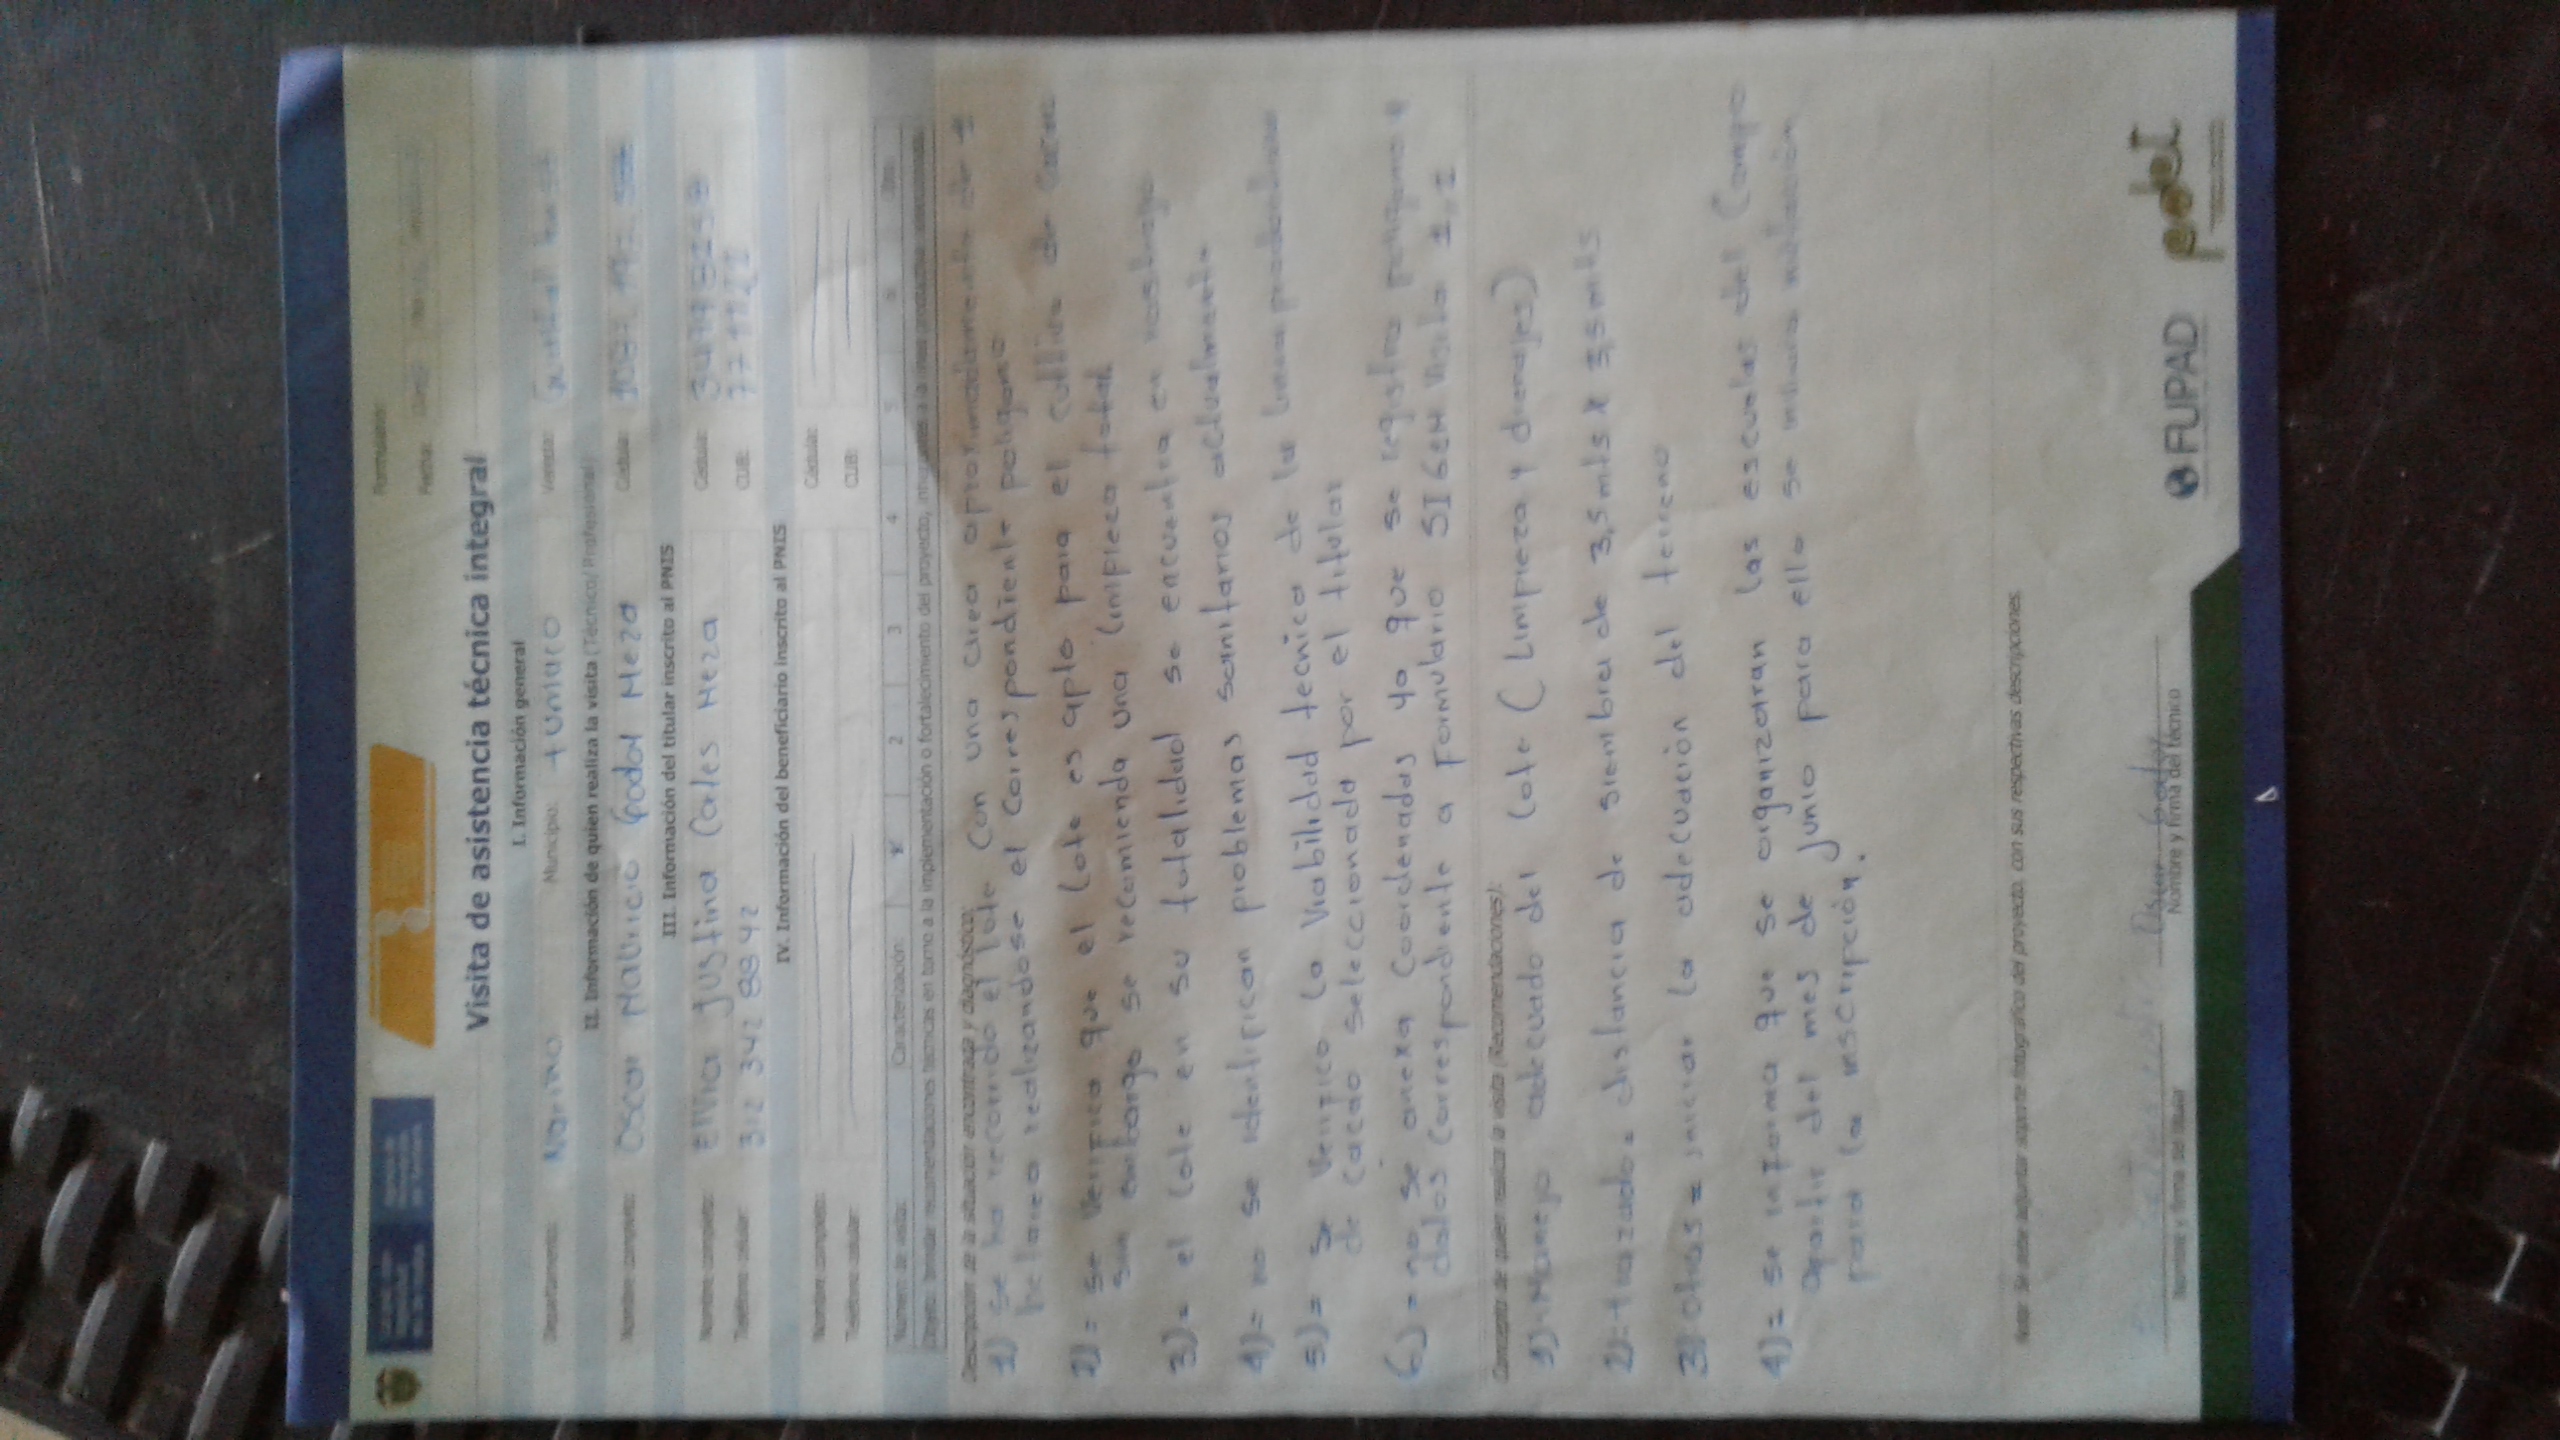 Formulario:
Fecha:
Visita de asistencia técnica integral
I. Información general
Departamento: Nariño Municipio: tumaco Vereda:
II. Información de quien realiza la visita (Técnico/ Profesional)
Nombre completo: Oscar Mauricio Godoy Meza Cédula:
III. Información del titular inscrito al PNIS
Nombre completo: Elvia Justina Cortes Meza Cédula:
Teléfono celular: 312 342 8842 CUB:
IV. Información del beneficiario inscrito al PNIS
Nombre completo: Cédula:
Teléfono celular: CUB:
Número de visita: Caracterización: 1 2 3 4 5 6
Objeto: brindar recomendaciones técnicas en torno a la implementación o fortalecimiento del proyecto,
Descripción de la situación encontrada y diagnóstico:
1) se ha recorrido el lote Con una area aproximadamente de 1
hectarea realizandose el Correspondiente poligono
2)= se Verifica que el Lote es apto para el cultivo de cacao
Sin embargo se recomienda una Limpieza total
3)= el Lote en su totalidad se encuentra en rastrojo
4)= no se identifican problemas sanitarios actualmente
5)= se Verifico La Viabilidad tecnica de la linea productiva
de Cacao seleccionada por el titular
6)= no se anexa Coordenadas ya que se registra poligono
datos Correspondiente a Formulario SIGEM Visita 1,2
Concepto de quien realiza la visita (Recomendaciones):
1)= Manejo adecuado del Lote (Limpieza y drenajes)
2)= trazado = distancia de siembra de 3,5mts x 3,5mts
3) Otras = iniciar la adecuación del terreno
4)= se informa que se organizaran las escuelas del Campo
apartir del mes de junio para ello se
para la inscripción.
Nota: Se debe adjuntar soporte fotográfico del proyecto, con sus respectivas descripciones.
Nombre y firma del titular
Oscar Godoy
Nombre y firma del técnico
FUPAD